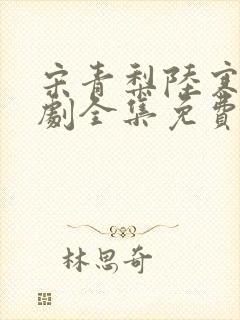 宋青梨陸寒
劇全集免費
林思奇